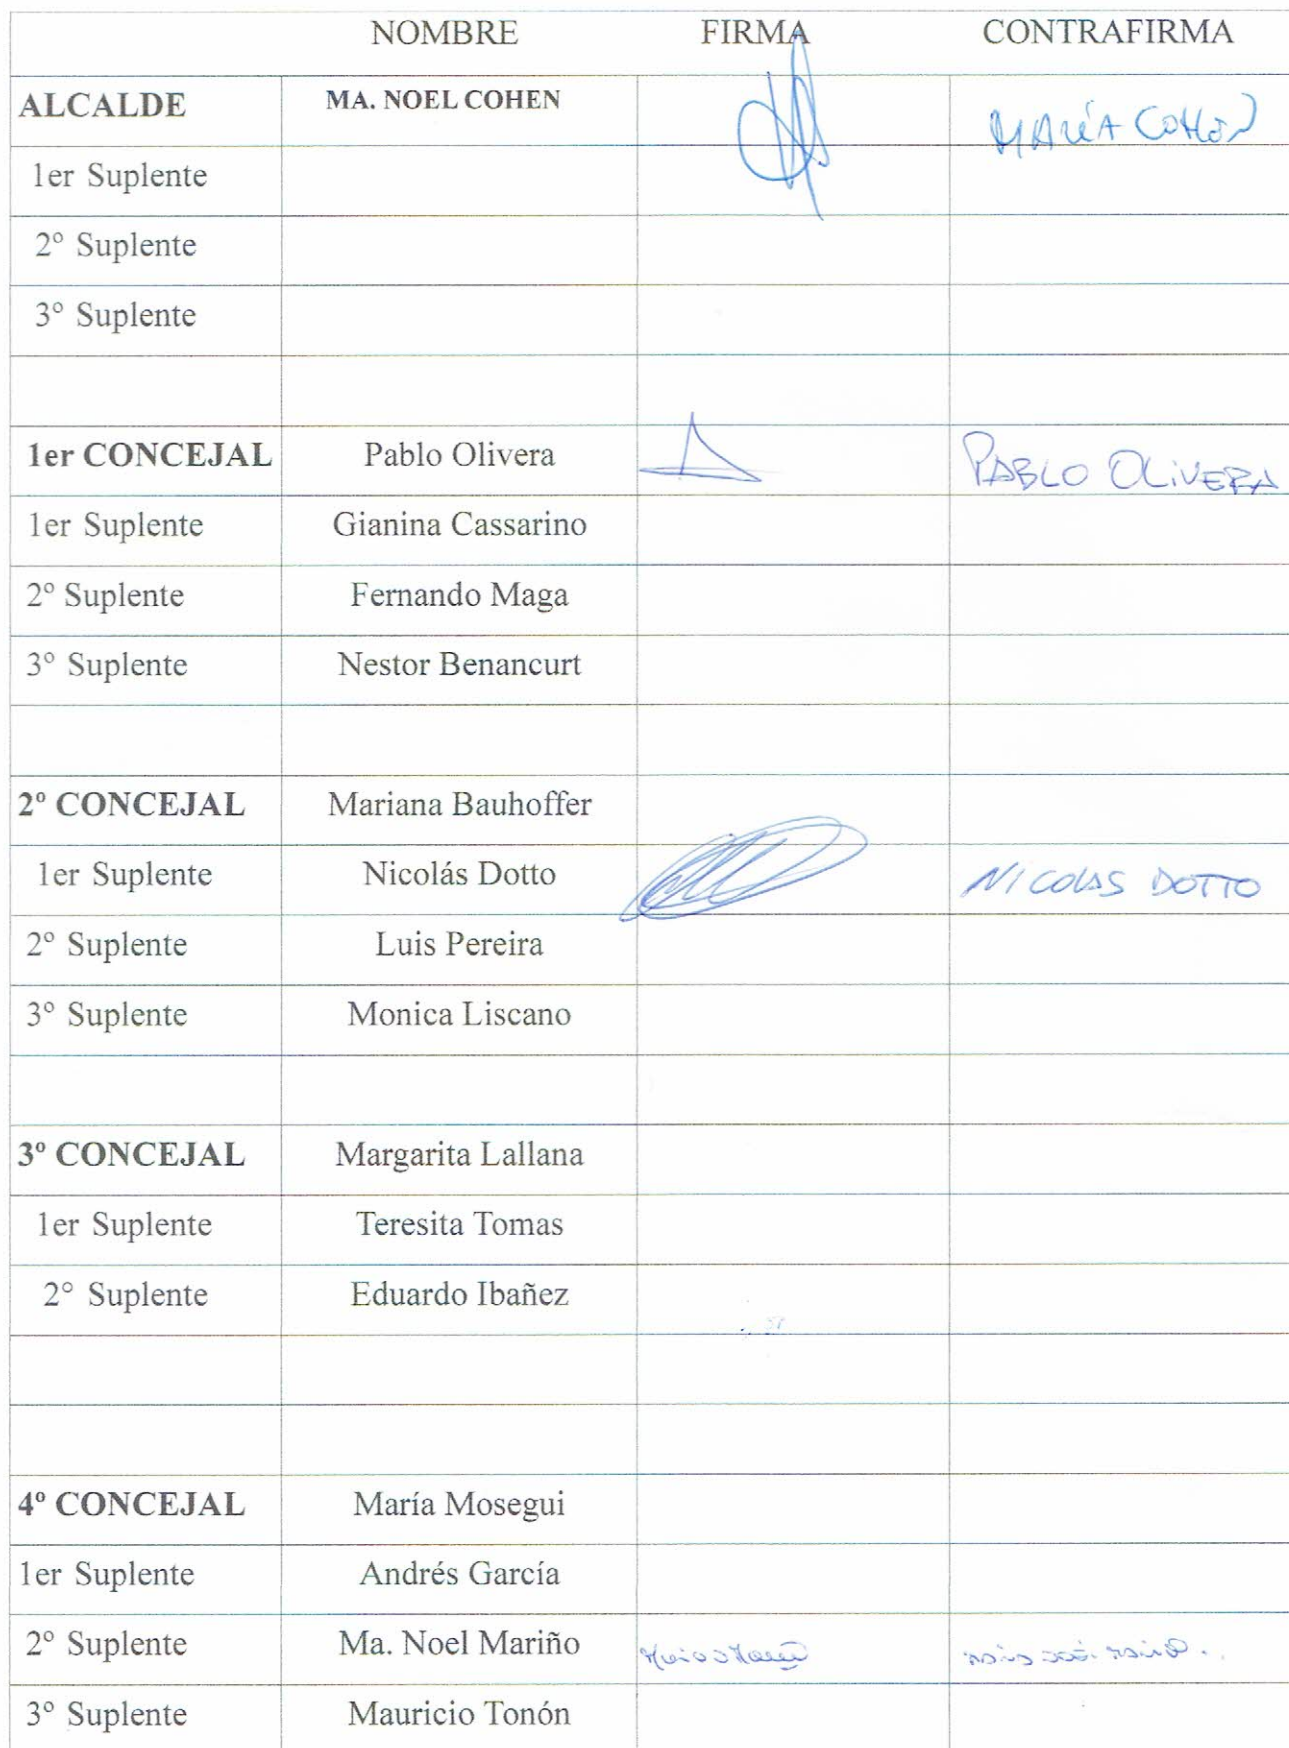 NOMBRE FIRMA CONTRAFIRMA
ALCALDE MA. NOEL COHEN MARÍA COHEN
1er Suplente
2° Suplente
3° Suplente
1er CONCEJAL Pablo Olivera PABLO OLIVERA
1er Suplente Gianina Cassarino
2º Suplente Fernando Maga
3º Suplente Nestor Benancurt
2º CONCEJAL Mariana Bauhoffer
1er Suplente Nicolás Dotto NICOLAS DOTTO
2° Suplente Luis Pereira
3° Suplente Monica Liscano
3º CONCEJAL Margarita Lallana
1er Suplente Teresita Tomas
2° Suplente Eduardo Ibañez
4º CONCEJAL María Mosegui
1er Suplente Andrés García
2° Suplente Ma. Noel Mariño
3° Suplente Mauricio Tonón